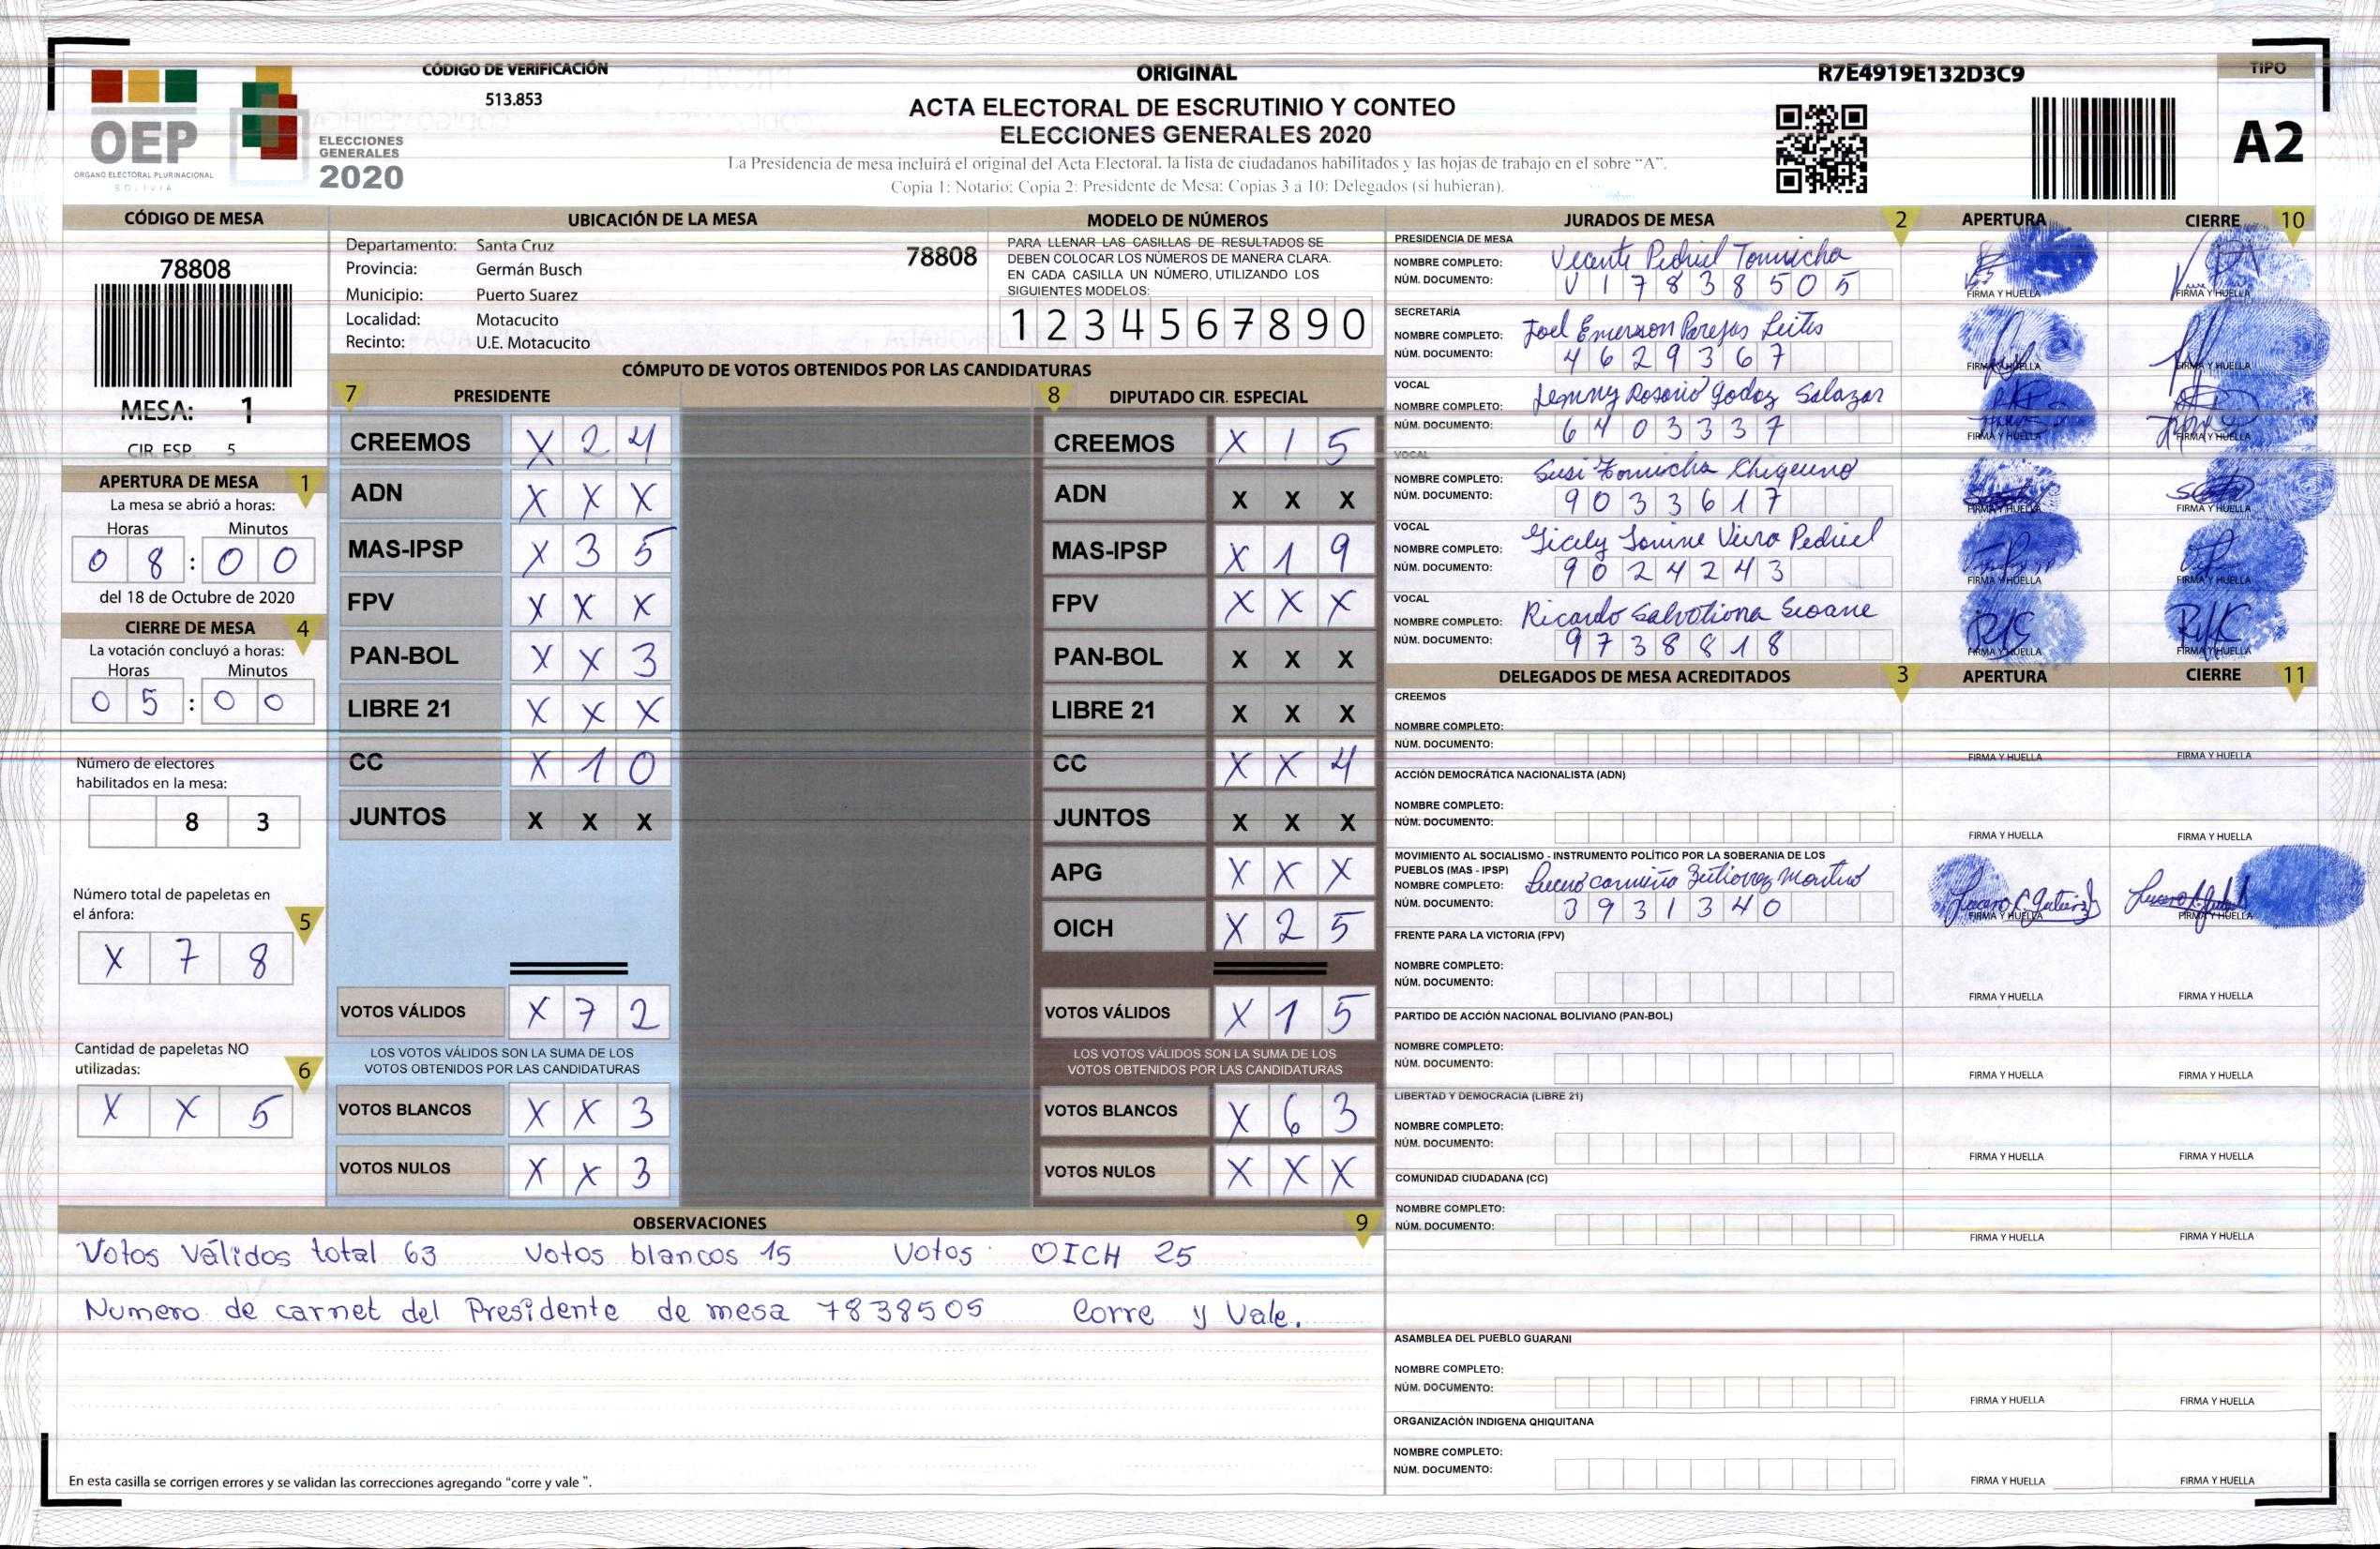 CÓDIGO DE VERIFICACIÓN
513.853
OEP
ORGANO ELECTORAL PLURINACIONAL
BOLIVIA
ELECCIONES
GENERALES
2020
ORIGINAL
ACTA ELECTORAL DE ESCRUTINIO Y CONTEO
ELECCIONES GENERALES 2020
La Presidencia de mesa incluirá el original del Acta Electoral, la lista de ciudadanos habilitados y las hojas de trabajo en el sobre “A”.
Copia 1: Notario; Copia 2: Presidente de Mesa; Copias 3 a 10: Delegados (si hubieran).
R7E4919E132D3C9
TIPO
A2
CÓDIGO DE MESA
78808
MESA: 1
CIR. ESP. 5
UBICACIÓN DE LA MESA
78808
Departamento: Santa Cruz
Provincia: Germán Busch
Municipio: Puerto Suarez
Localidad: Motacucito
Recinto: U.E. Motacucito
MODELO DE NÚMEROS
PARA LLENAR LAS CASILLAS DE RESULTADOS SE
DEBEN COLOCAR LOS NÚMEROS DE MANERA CLARA.
EN CADA CASILLA UN NÚMERO, UTILIZANDO LOS
SIGUIENTES MODELOS:
1 2 3 4 5 6 7 8 9 0
APERTURA DE MESA 1
La mesa se abrió a horas:
Horas Minutos
0 8 : 0 0
del 18 de Octubre de 2020
CIERRE DE MESA 4
La votación concluyó a horas:
Horas Minutos
0 5 : 0 0
Número de electores
habilitados en la mesa:
8 3
Número total de papeletas en
el ánfora:
5
X 7 8
Cantidad de papeletas NO
utilizadas:
6
X X 5
CÓMPUTO DE VOTOS OBTENIDOS POR LAS CANDIDATURAS
7 PRESIDENTE
CREEMOS X 2 4
ADN X X X
MAS-IPSP X 3 5
FPV X X X
PAN-BOL X X 3
LIBRE 21 X X X
CC X 1 0
JUNTOS X X X
VOTOS VÁLIDOS X 7 2
LOS VOTOS VÁLIDOS SON LA SUMA DE LOS
VOTOS OBTENIDOS POR LAS CANDIDATURAS
VOTOS BLANCOS X X 3
VOTOS NULOS X X 3
8 DIPUTADO CIR. ESPECIAL
CREEMOS X 1 5
ADN X X X
MAS-IPSP X 1 9
FPV X X X
PAN-BOL X X X
LIBRE 21 X X X
CC X X 4
JUNTOS X X X
APG X X X
OICH X 2 5
VOTOS VÁLIDOS X 1 5
LOS VOTOS VÁLIDOS SON LA SUMA DE LOS
VOTOS OBTENIDOS POR LAS CANDIDATURAS
VOTOS BLANCOS X 6 3
VOTOS NULOS X X X
OBSERVACIONES 9
Votos Válidos total 63 Votos blancos 15 Votos OICH 25
Numero de carnet del Presidente de mesa 7838505 Corre y Vale.
En esta casilla se corrigen errores y se validan las correcciones agregando “corre y vale ”.
JURADOS DE MESA 2 APERTURA CIERRE 10
PRESIDENCIA DE MESA
NOMBRE COMPLETO: Vicente Pedriel Tomicha
NÚM. DOCUMENTO: 1 7 8 3 8 5 0 5
FIRMA Y HUELLA FIRMA Y HUELLA
SECRETARÍA
NOMBRE COMPLETO: Joel Emerson Parejas Leites
NÚM. DOCUMENTO: 4 6 2 9 3 6 7
FIRMA Y HUELLA FIRMA Y HUELLA
VOCAL
NOMBRE COMPLETO: Jemmy Rosario Godoz Salazar
NÚM. DOCUMENTO: 6 4 0 3 3 3 7
FIRMA Y HUELLA FIRMA Y HUELLA
VOCAL
NOMBRE COMPLETO: Susi Tomicha Chiqueno
NÚM. DOCUMENTO: 9 0 3 3 6 1 7
FIRMA Y HUELLA FIRMA Y HUELLA
VOCAL
NOMBRE COMPLETO: Pedriel
NÚM. DOCUMENTO: 9 0 2 4 2 4 3
FIRMA Y HUELLA FIRMA Y HUELLA
VOCAL
NOMBRE COMPLETO: Ricardo Seoane
NÚM. DOCUMENTO: 9 7 3 8 8 1 8
FIRMA Y HUELLA FIRMA Y HUELLA
DELEGADOS DE MESA ACREDITADOS 3 APERTURA CIERRE 11
CREEMOS
NOMBRE COMPLETO:
NÚM. DOCUMENTO:
FIRMA Y HUELLA FIRMA Y HUELLA
ACCIÓN DEMOCRÁTICA NACIONALISTA (ADN)
NOMBRE COMPLETO:
NÚM. DOCUMENTO:
FIRMA Y HUELLA FIRMA Y HUELLA
MOVIMIENTO AL SOCIALISMO - INSTRUMENTO POLÍTICO POR LA SOBERANIA DE LOS
PUEBLOS (MAS - IPSP)
NOMBRE COMPLETO:
NÚM. DOCUMENTO: 3 9 3 1 3 4 0
FIRMA Y HUELLA FIRMA Y HUELLA
FRENTE PARA LA VICTORIA (FPV)
NOMBRE COMPLETO:
NÚM. DOCUMENTO:
FIRMA Y HUELLA FIRMA Y HUELLA
PARTIDO DE ACCIÓN NACIONAL BOLIVIANO (PAN-BOL)
NOMBRE COMPLETO:
NÚM. DOCUMENTO:
FIRMA Y HUELLA FIRMA Y HUELLA
LIBERTAD Y DEMOCRACIA (LIBRE 21)
NOMBRE COMPLETO:
NÚM. DOCUMENTO:
FIRMA Y HUELLA FIRMA Y HUELLA
COMUNIDAD CIUDADANA (CC)
NOMBRE COMPLETO:
NÚM. DOCUMENTO:
FIRMA Y HUELLA FIRMA Y HUELLA
ASAMBLEA DEL PUEBLO GUARANI
NOMBRE COMPLETO:
NÚM. DOCUMENTO:
FIRMA Y HUELLA FIRMA Y HUELLA
ORGANIZACIÓN INDIGENA QHIQUITANA
NOMBRE COMPLETO:
NÚM. DOCUMENTO:
FIRMA Y HUELLA FIRMA Y HUELLA